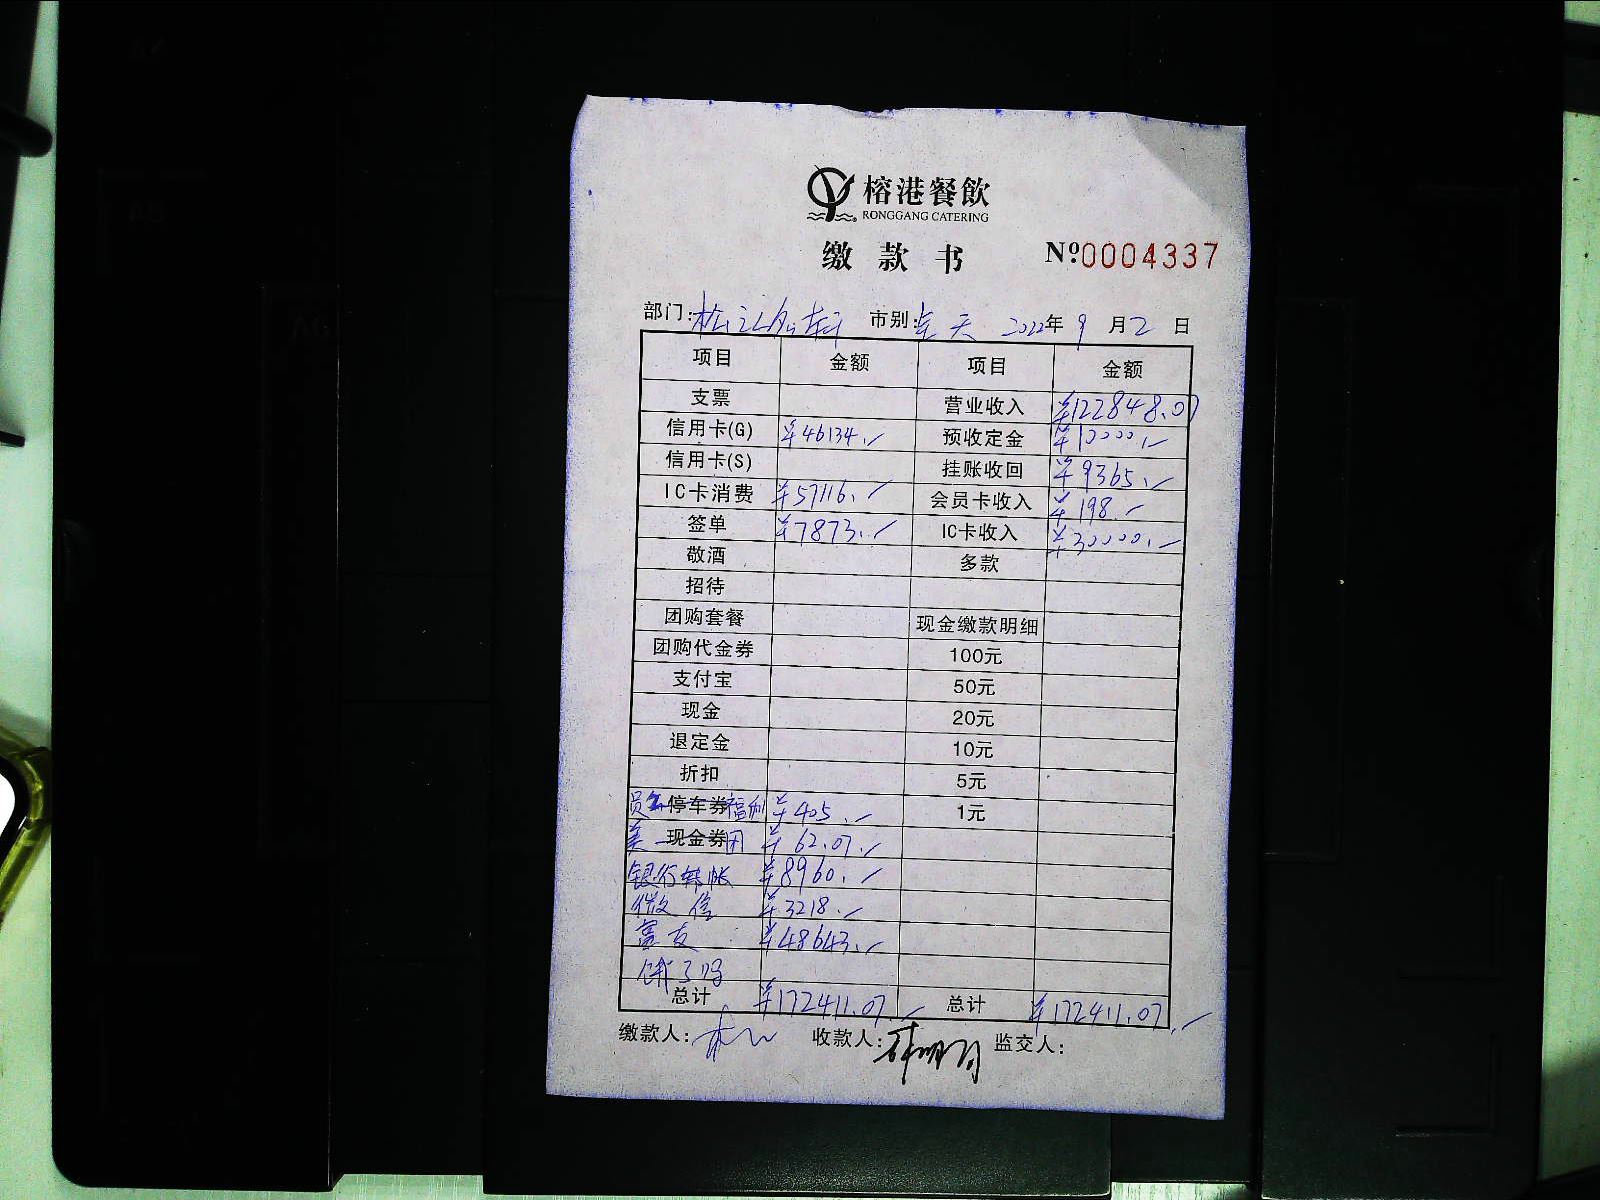 榕港餐飲
RONGGANG CATERING
缴款书 №0004337
部门: 市别: 全天 2022年9月2日
项目 金额 项目 金额
支票 营业收入 ¥122848.07
信用卡(G) ¥46134.- 预收定金 ¥10000.-
信用卡(S) 挂账收回 ¥9365.-
IC卡消费 ¥57116.- 会员卡收入 ¥198.-
签单 ¥7873.- IC卡收入 ¥30000.-
敬酒 多款
招待
团购套餐 现金缴款明细
团购代金券 100元
支付宝 50元
现金 20元
退定金 10元
折扣 5元
员工停车券福利 ¥405.- 1元
美-现金券团 ¥62.07.-
银行转帐 ¥8960.-
微信 ¥3218.-
富友 ¥48643.-
饿了吗
总计 ¥172411.07.- 总计 ¥172411.07.-
缴款人: 收款人: 监交人: